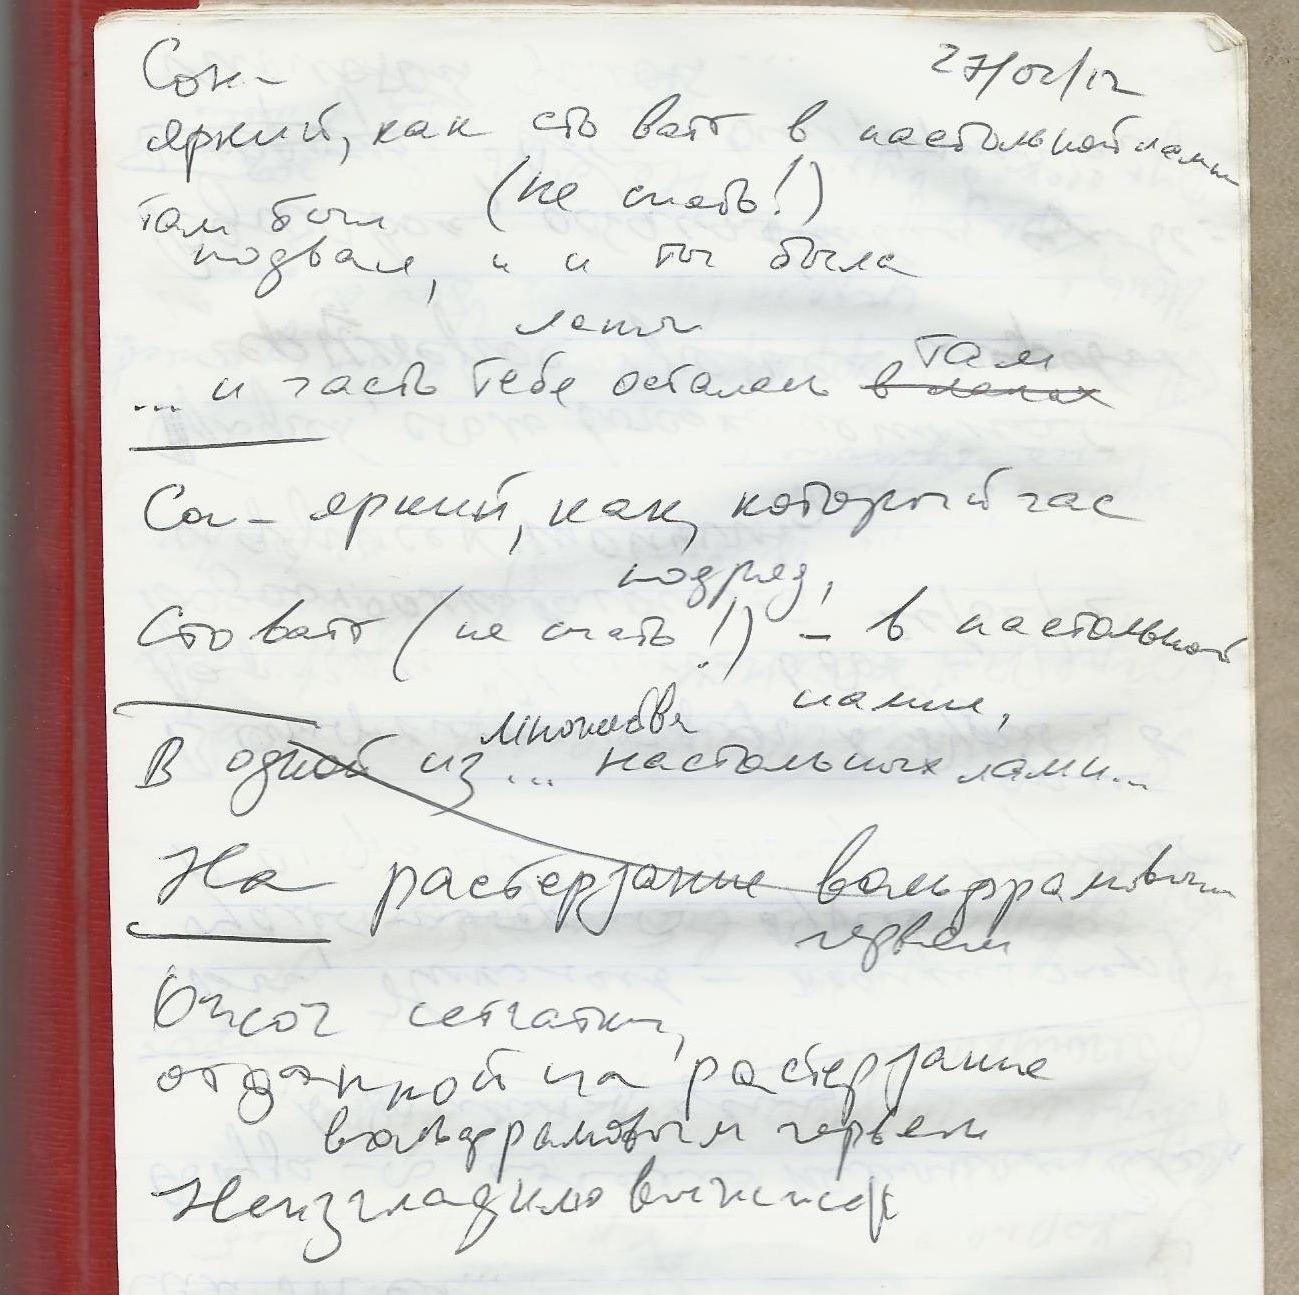 27/02/12
Сон –
яркий, как сто ватт в настольной лампе
(не спать!)
там был
подвал, и и ты была
лапы
... и часть тебе осталась в лапах там
Сон – яркий, как, который час
подряд,
Сто ватт (не спать!) – в настольной
лампе,
множества
В одной из ... настольных ламп...
На растерзание вольфрамовым
червем
Ожог сетчатки,
отданной на растерзание
вольфрамовым червем
Неизгладимо